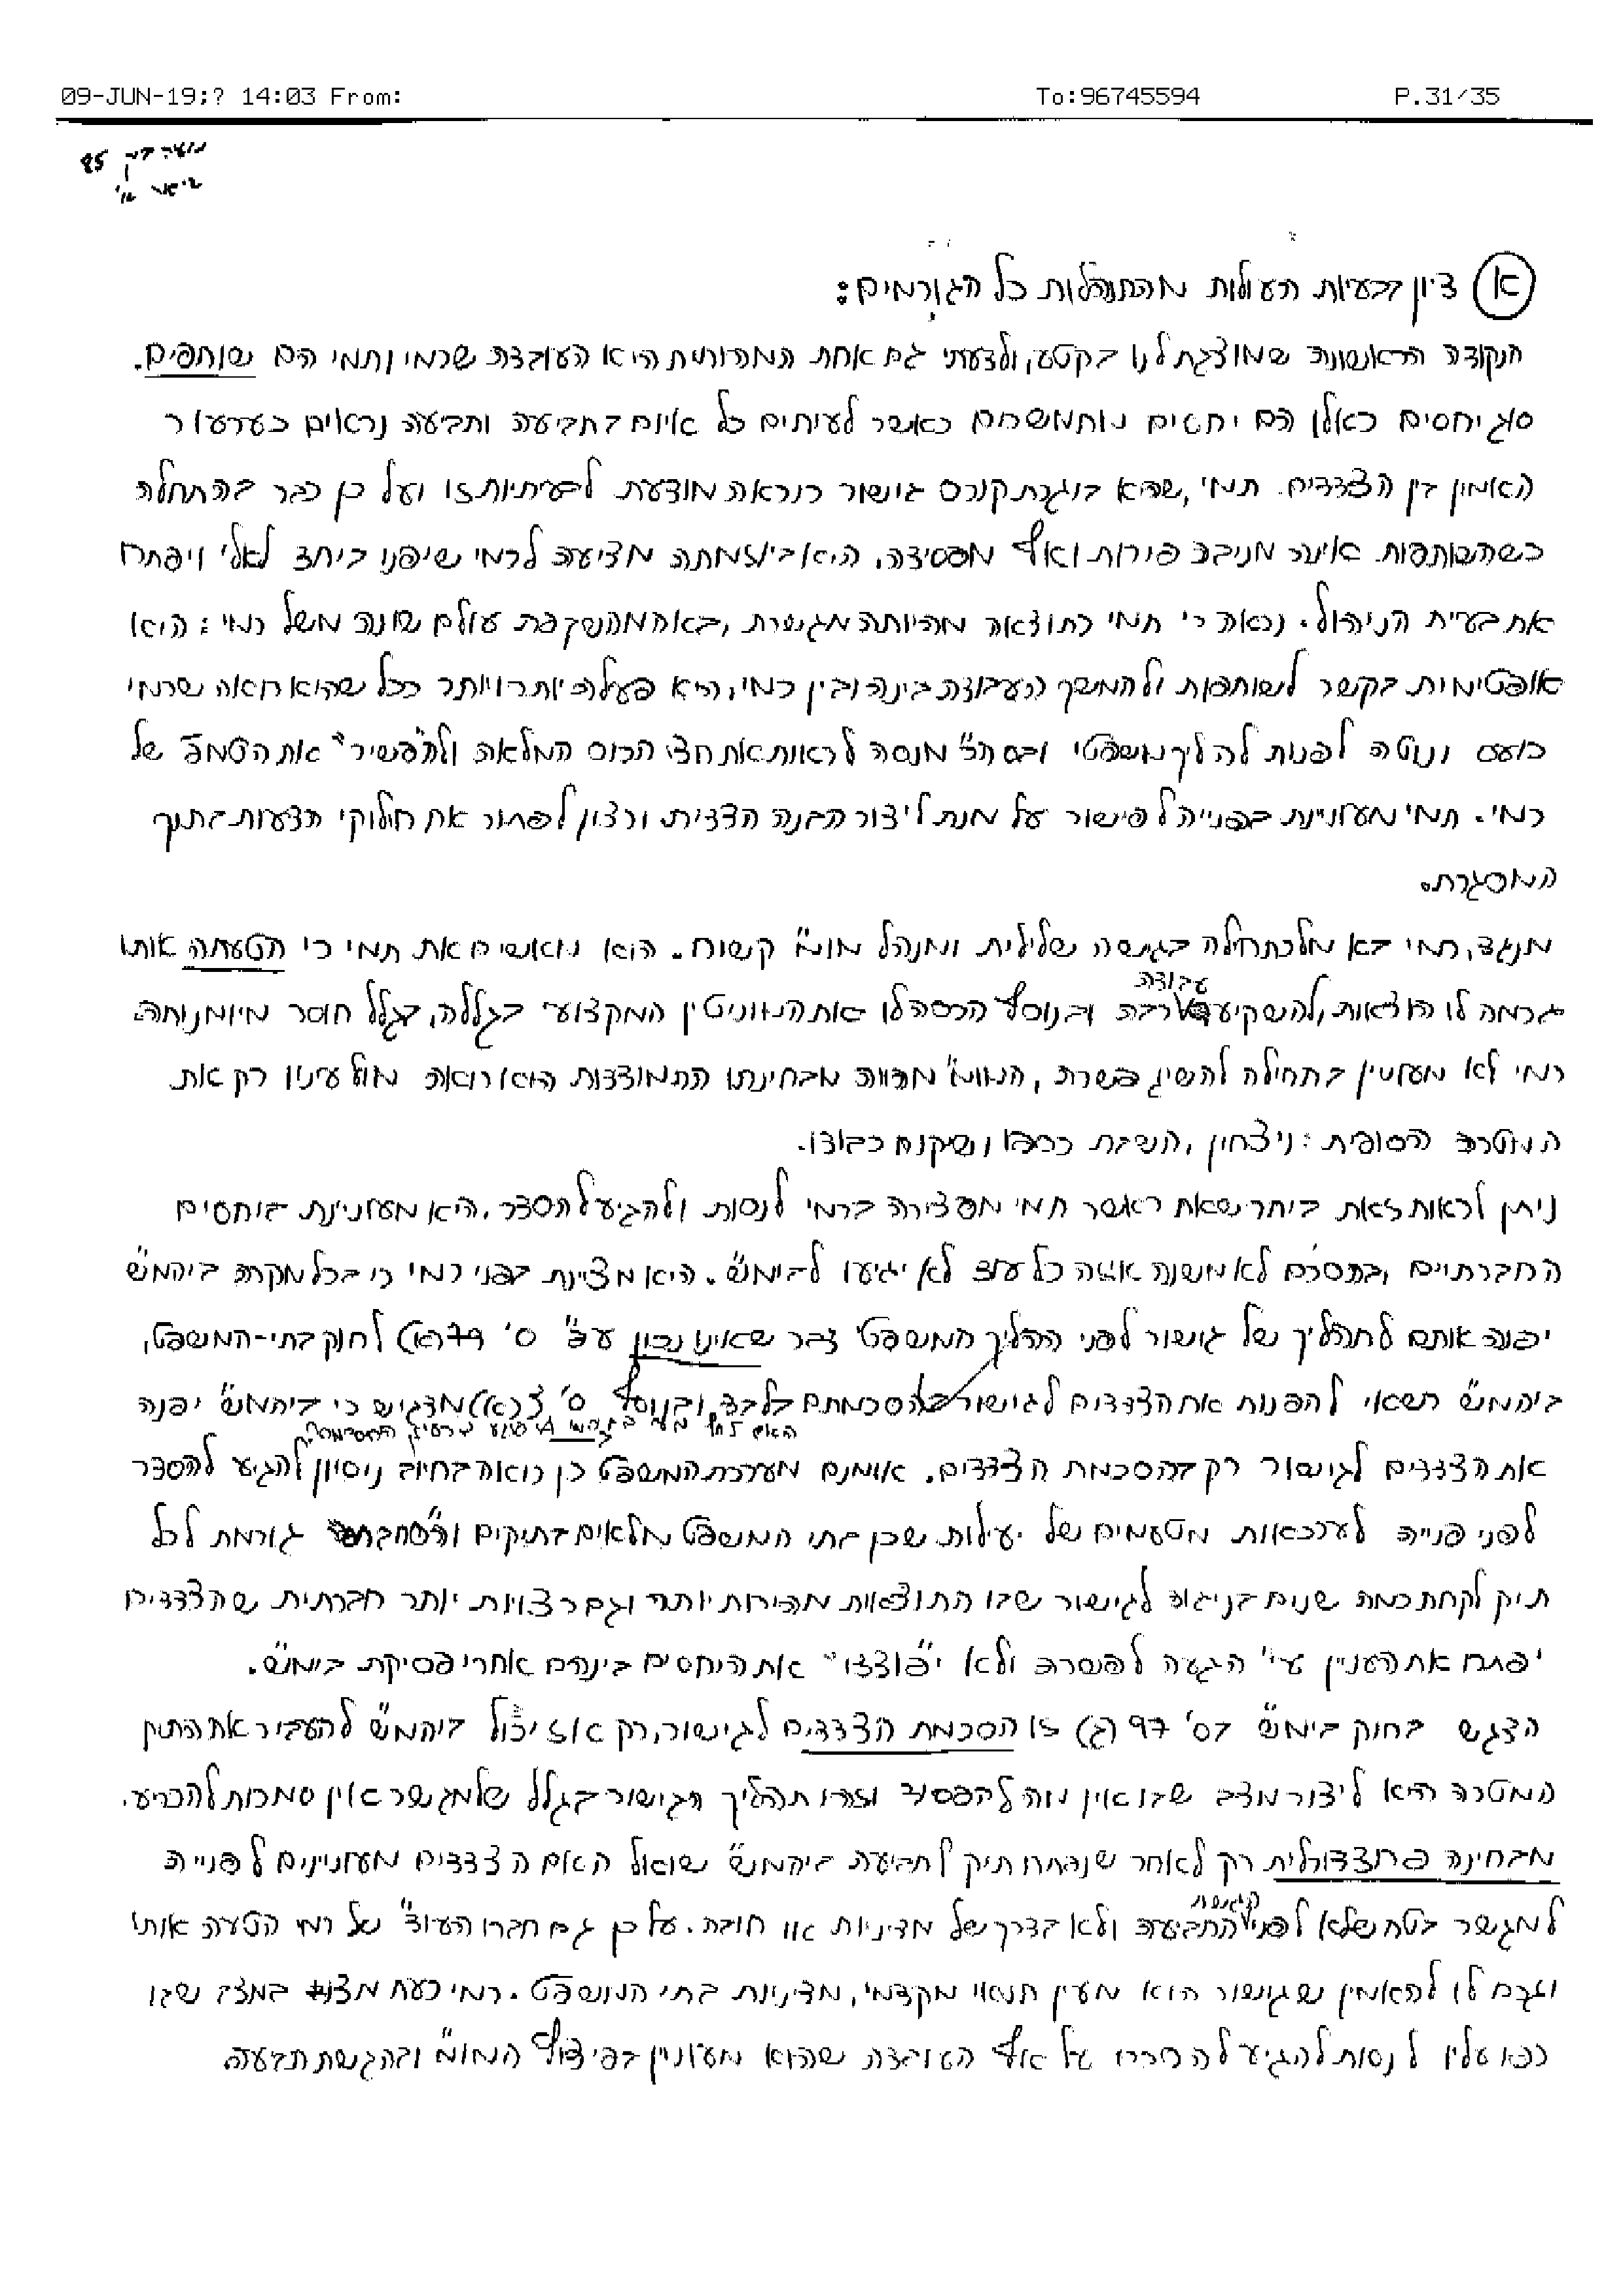 09-JUN-19;? 14:03 From: To:96745594 P.31/35
85
א דיון בבעיות העולות מהתנהלות כל הגורמים:
הנקודה הראשונה שמוצגת לנו בקטע, ולדעתי גם אחת המהותיות היא העובדה שרמי ותמי הם שותפים.
סוג יחסים כאלו הם יחסים מתמשכים כאשר לעיתים כל איום בתביעה ותביעה נראים כערעור
האמון בין הצדדים. תמי, שהיא בוגרת קורס גישור כנראה מודעת לבעיתיות זו ועל כן כבר בהתחלה
כשהשותפות אינה מניבה פירות ואף מפסידה, היא ביוזמתה מציעה לרמי שיפנו ביחד לאלי ויפתרו
את בעיית הניהול. נראה כי תמי כתוצאה מהיותה מגשרת, באה מהשקפת עולם שונה משל רמי: היא
אופטימית בקשר לשותפות ולהמשך העבודה בינה ובין רמי, היא פעילה יותר ויותר ככל שהיא רואה שרמי
כועס ונוטה לפנות להליך משפטי ובסה"כ מנסה לראות את חצי הכוס המלאה ולה"פשיר" את הטמפ' של
רמי. תמי מעוניינת בפנייה לפישור על מנת ליצור הבנה הדדית ורצון לפתור את חילוקי הדעות בתוך
המסגרת.
מנגד, רמי בא מלכתחילה בגישה שלילית ומנהל מו"מ קשוח. הוא מאשים את תמי כי הטעתה אותו
עבודה
גרמה לו הוצאות, להשקיע רבה ובנוסף הרסה לו את המוניטין המקצועי בגללה, בגלל חוסר מיומנותה.
רמי לא מעוניין בתחילה להשיג פשרה, המו"מ מהווה מבחינתו התמודדות הוא רואה מול עיניו רק את
המטרה הסופית: ניצחון, השבת כספו ושיקום כבודו.
ניתן לראות זאת ביתר שאת כאשר תמי מפצירה ברמי לנסות ולהגיע להסדר, היא מעוניינת ביחסים
החברתיים, בהסכם לא משנה איזה כל עוד לא יגיעו לבימ"ש. היא מציינת בפני רמי כי בכל מקרה ביהמ"ש
יפנה אותם לתהליך של גישור לפני ההליך המשפטי דבר שאינו נכון עפ"י ס' 79(א) לחוק בתי-המשפט,
ביהמ"ש רשאי להפנות את הצדדים לגישור בהסכמתם בלבד, ובנוסף ס' 3(א) מדגיש כי ביהמ"ש יפנה
את הצדדים לגישור רק בהסכמת הצדדים. אומנם מערכת המשפט כן רואה בחיוב ניסיון להגיע להסדר
לפני פנייה לערכאות מטעמים של יעילות שכן בתי המשפט מלאים בתיקים וה"סחבת" גורמת לכל
תיק לקחת כמה שנים בניגוד לגישור שבו התוצאות מהירות יותר וגם רצויות יותר חברתית שהצדדים
יפתרו את העניין ע"י הגעה לפשרה ולא "יפוצצו" את היחסים ביניהם אחרי פסיקת בימ"ש.
הדגש בחוק בימ"ש בס' 79 (ג) זו הסכמת הצדדים לגישור, רק אז יכול ביהמ"ש להעביר את התיק
המטרה היא ליצור מצב שבו אין מה להפסיד וזהו תהליך הגישור בגלל שלמגשר אין סמכות להכריע.
מבחינה פרוצדורלית רק לאחר שנפתח תיק לתביעה ביהמ"ש שואל האם הצדדים מעוניינים לפנייה
הגשת
למגשר בטח שלא לפני התביעה ולא בדרך של מדיניות או חובה. על כן גם חברו העו"ד של רמי הטעה אותו
וגרם לו להאמין שגישור הוא מעין תנאי מקדמי, מדיניות בתי המשפט. רמי כעת מצוי במצב שבו
כפו עליו לנסות להגיע להסדר על אף העובדה שהוא מעוניין בפיצוץ המו"מ ובהגשת תביעה